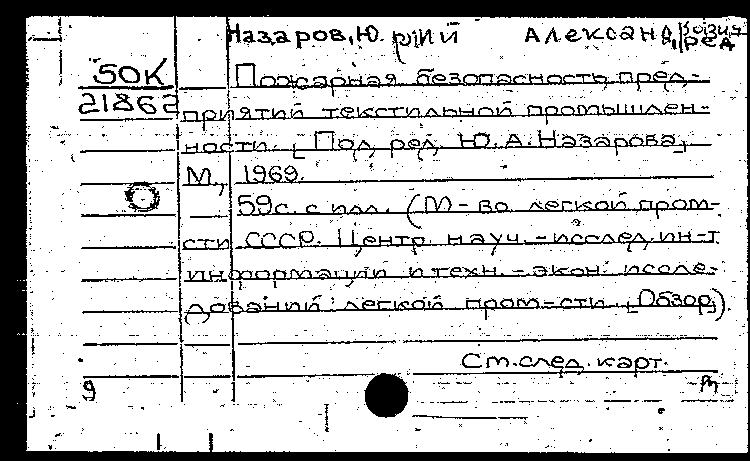 Назаров, Юрий Александрович, ред
50К
21862
Пожарная безопасность пред-
приятий текстильной промышлен-
ности. [Под ред. Ю.А. Назарова]
М., 1969.
59с. с илл. (М-во легкой пром-
сти СССР. Центр. науч.-исслед. ин-т
информации и техн.-экон. иссле-
дований легкой пром-сти. [Обзор]).
См. след. карт.
9